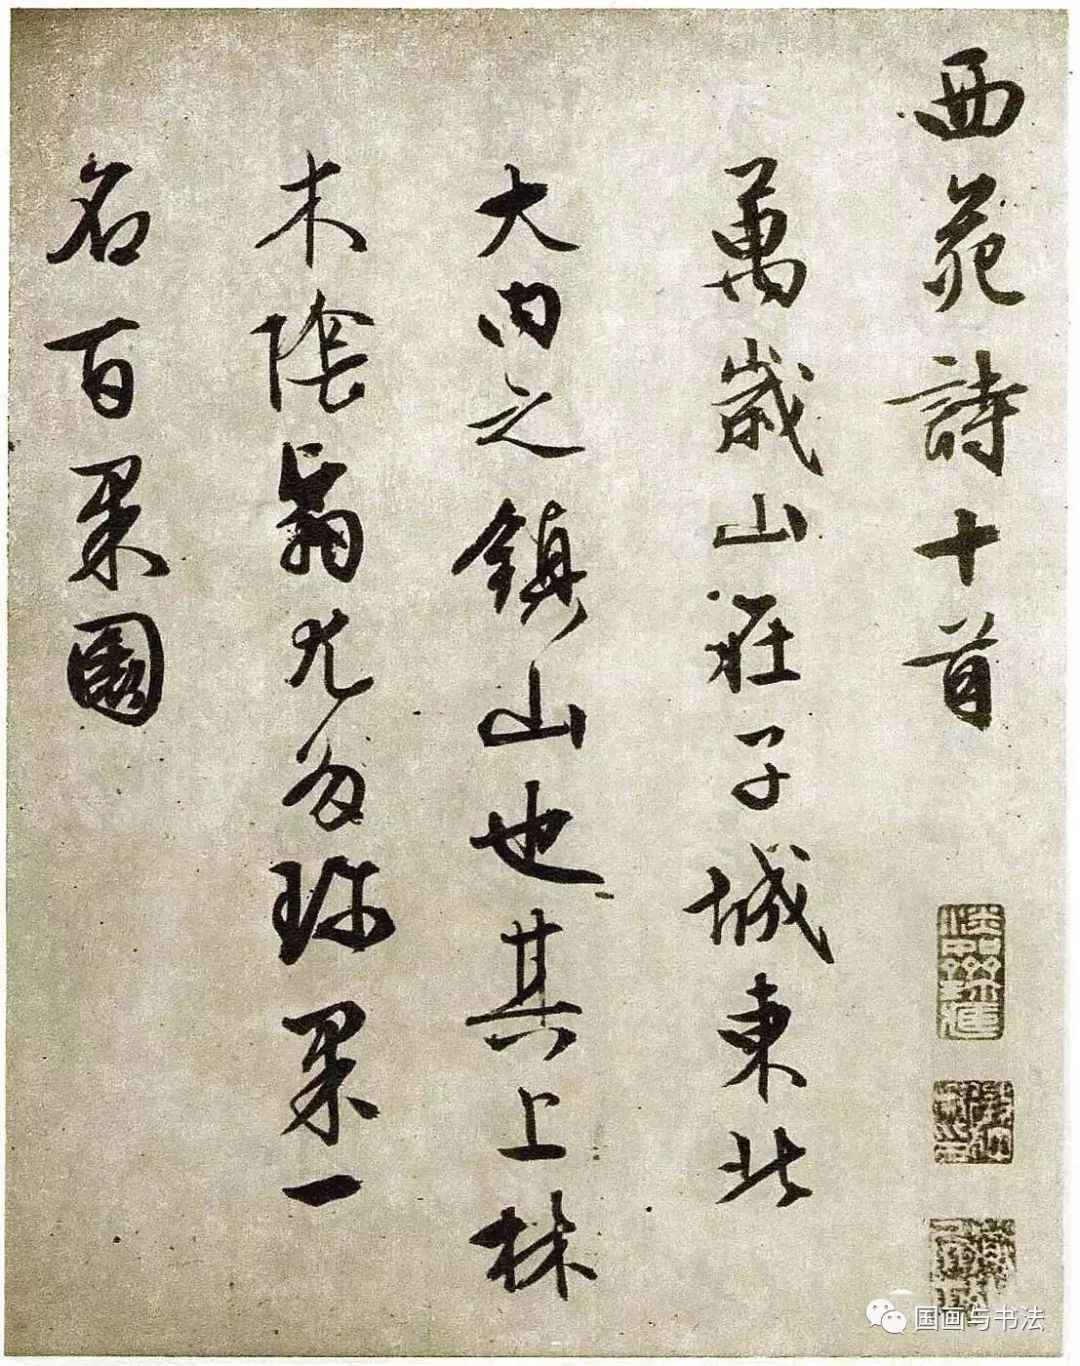 西苑詩十首
萬歲山在子城東北
大内之鎮山也其上林
木陰翳尤多珍果一
名百果園
国画与书法